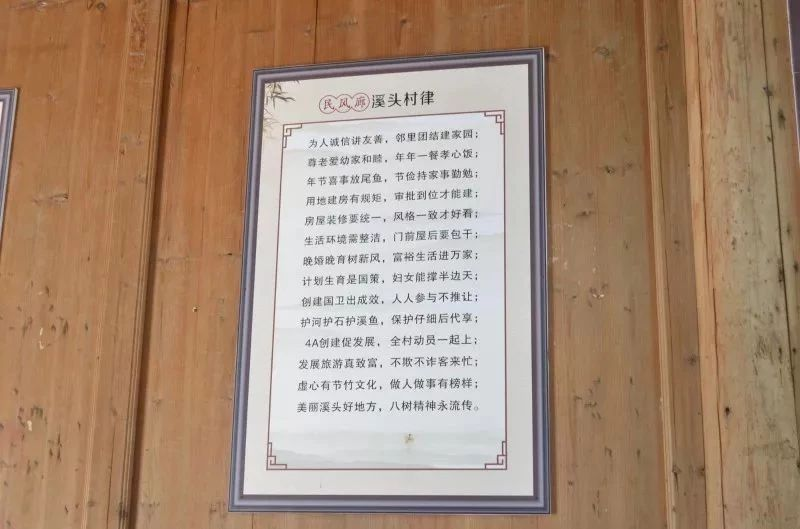 民风廊 溪头村律
为人诚信讲友善，邻里团结建家园；
尊老爱幼家和睦，年年一餐孝心饭；
年节喜事放尾鱼，节俭持家事勤勉；
用地建房有规矩，审批到位才能建；
房屋装修要统一，风格一致才好看；
生活环境需整洁，门前屋后要包干；
晚婚晚育树新风，富裕生活进万家；
计划生育是国策，妇女能撑半边天；
创建国卫出成效，人人参与不推让；
护河护石护溪鱼，保护仔细后代享；
4A创建促发展，全村动员一起上；
发展旅游真致富，不欺不诈客来忙；
虚心有节竹文化，做人做事有榜样；
美丽溪头好地方，八树精神永流传。